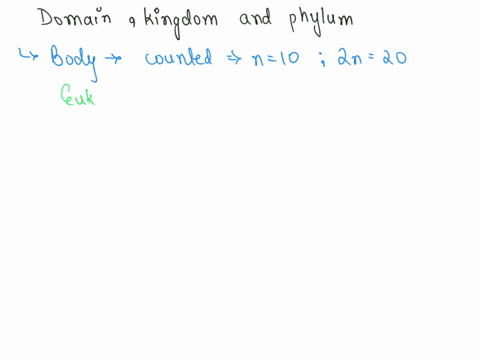 Domain, kingdom and phylum
↳ Body → counted ⇒ n=10 ; 2n=20
(euk